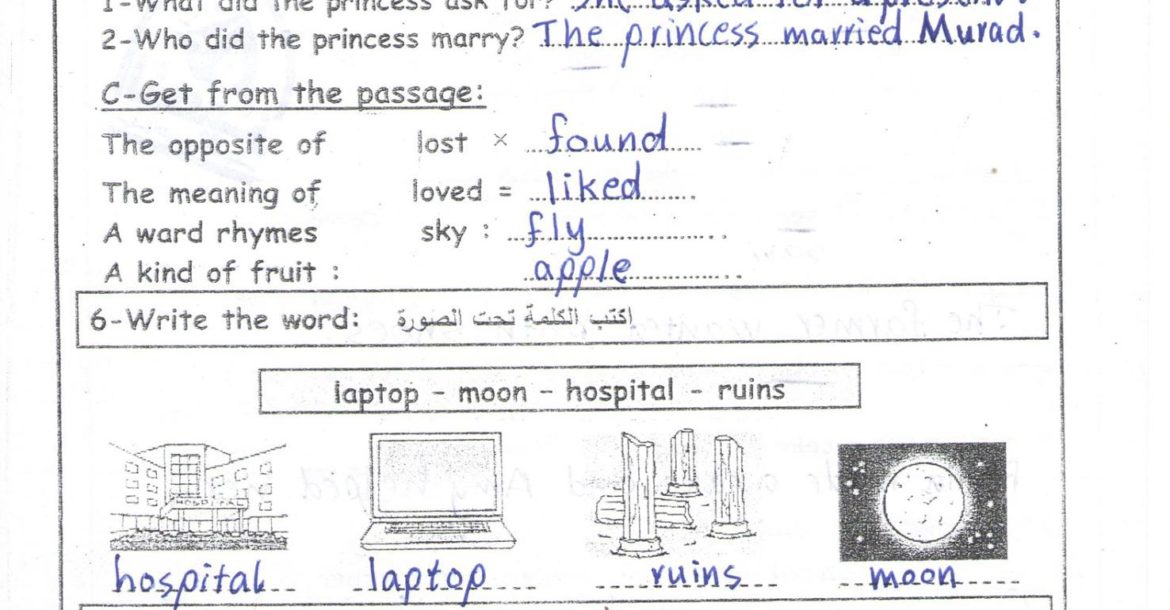 1-What did the princess ask for? She asked for a present.
2-Who did the princess marry? The princess married Murad.
C-Get from the passage:
The opposite of lost × found
The meaning of loved = liked
A ward rhymes sky : fly
A kind of fruit : apple
6-Write the word: اكتب الكلمة تحت الصورة
laptop - moon - hospital - ruins
hospital laptop ruins moon